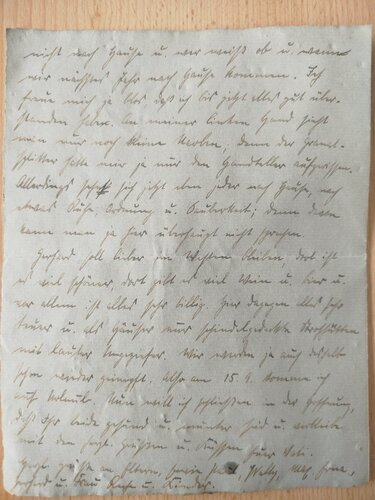 nicht nach Hause u. wer weiß ob u. wann
wir nächstes Jahr nach Hause kommen. Ich
freue mich ja blos daß ich bis jetzt alles gut über-
standen habe. An meiner linken Hand sieht
man nur noch kleine Narben, denn der Granat-
splitter hatte mir ja nur den Handteller aufgerissen.
Allerdings sehnt sich jetzt eben jeder nach Hause, nach
etwas Ruhe, Ordnung u. Sauberkeit; denn davon
kann man ja hier überhaupt nicht sprechen.
Gerhard soll lieber im Westen bleiben, dort ist
es viel schöner, dort gibt es viel Wein u. Bier u.
vor allem ist alles sehr billig. Hier dagegen alles sehr
teuer u. als Häuser nur schindelgedeckte Strohhütten
mit lauter Ungeziefer. Wir werden ja auch deshalb
schon wieder geimpft. Also am 15.9. komme ich
nach Wolmut. Nun will ich schließen in der Hoffnung,
daß Ihr beide gesund u. munter seid u. verbleibe
mit den herzl. Grüßen u. Küssen Euer Vati.
Herzl. Grüße an Eltern, sowie Willy,
Gerhard u. Frau u. Kinder.